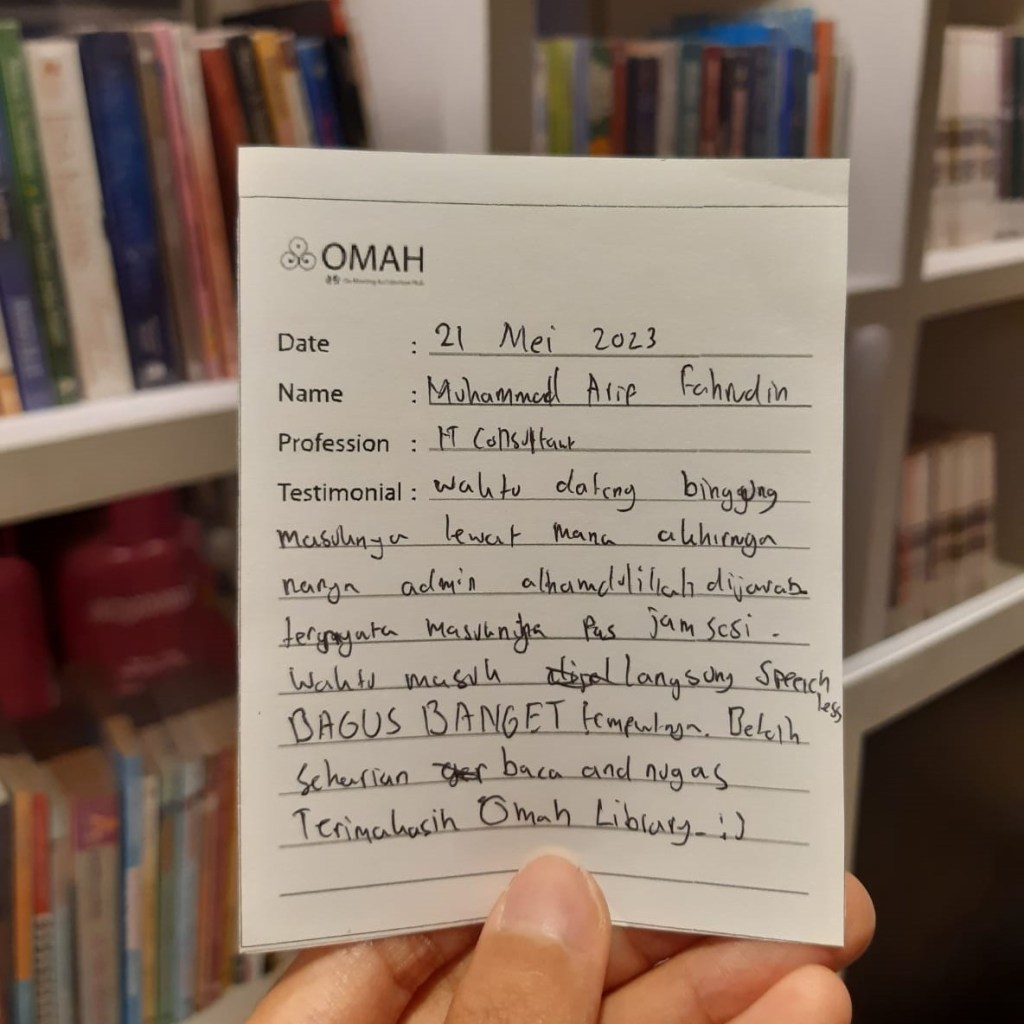 OMAH
Date : 21 Mei 2023
Name : Muhammad Arif Fahrudin
Profession : IT Consultant
Testimonial : waktu dateng bingung
masuknya lewat mana akhirnya
nanya admin alhamdulillah dijawab
ternyata masuknya pas jam sesi.
Waktu masuk langsung speechless
BAGUS BANGET tempatnya. Betah
seharian baca and nugas
Terimakasih Omah Library_ :)